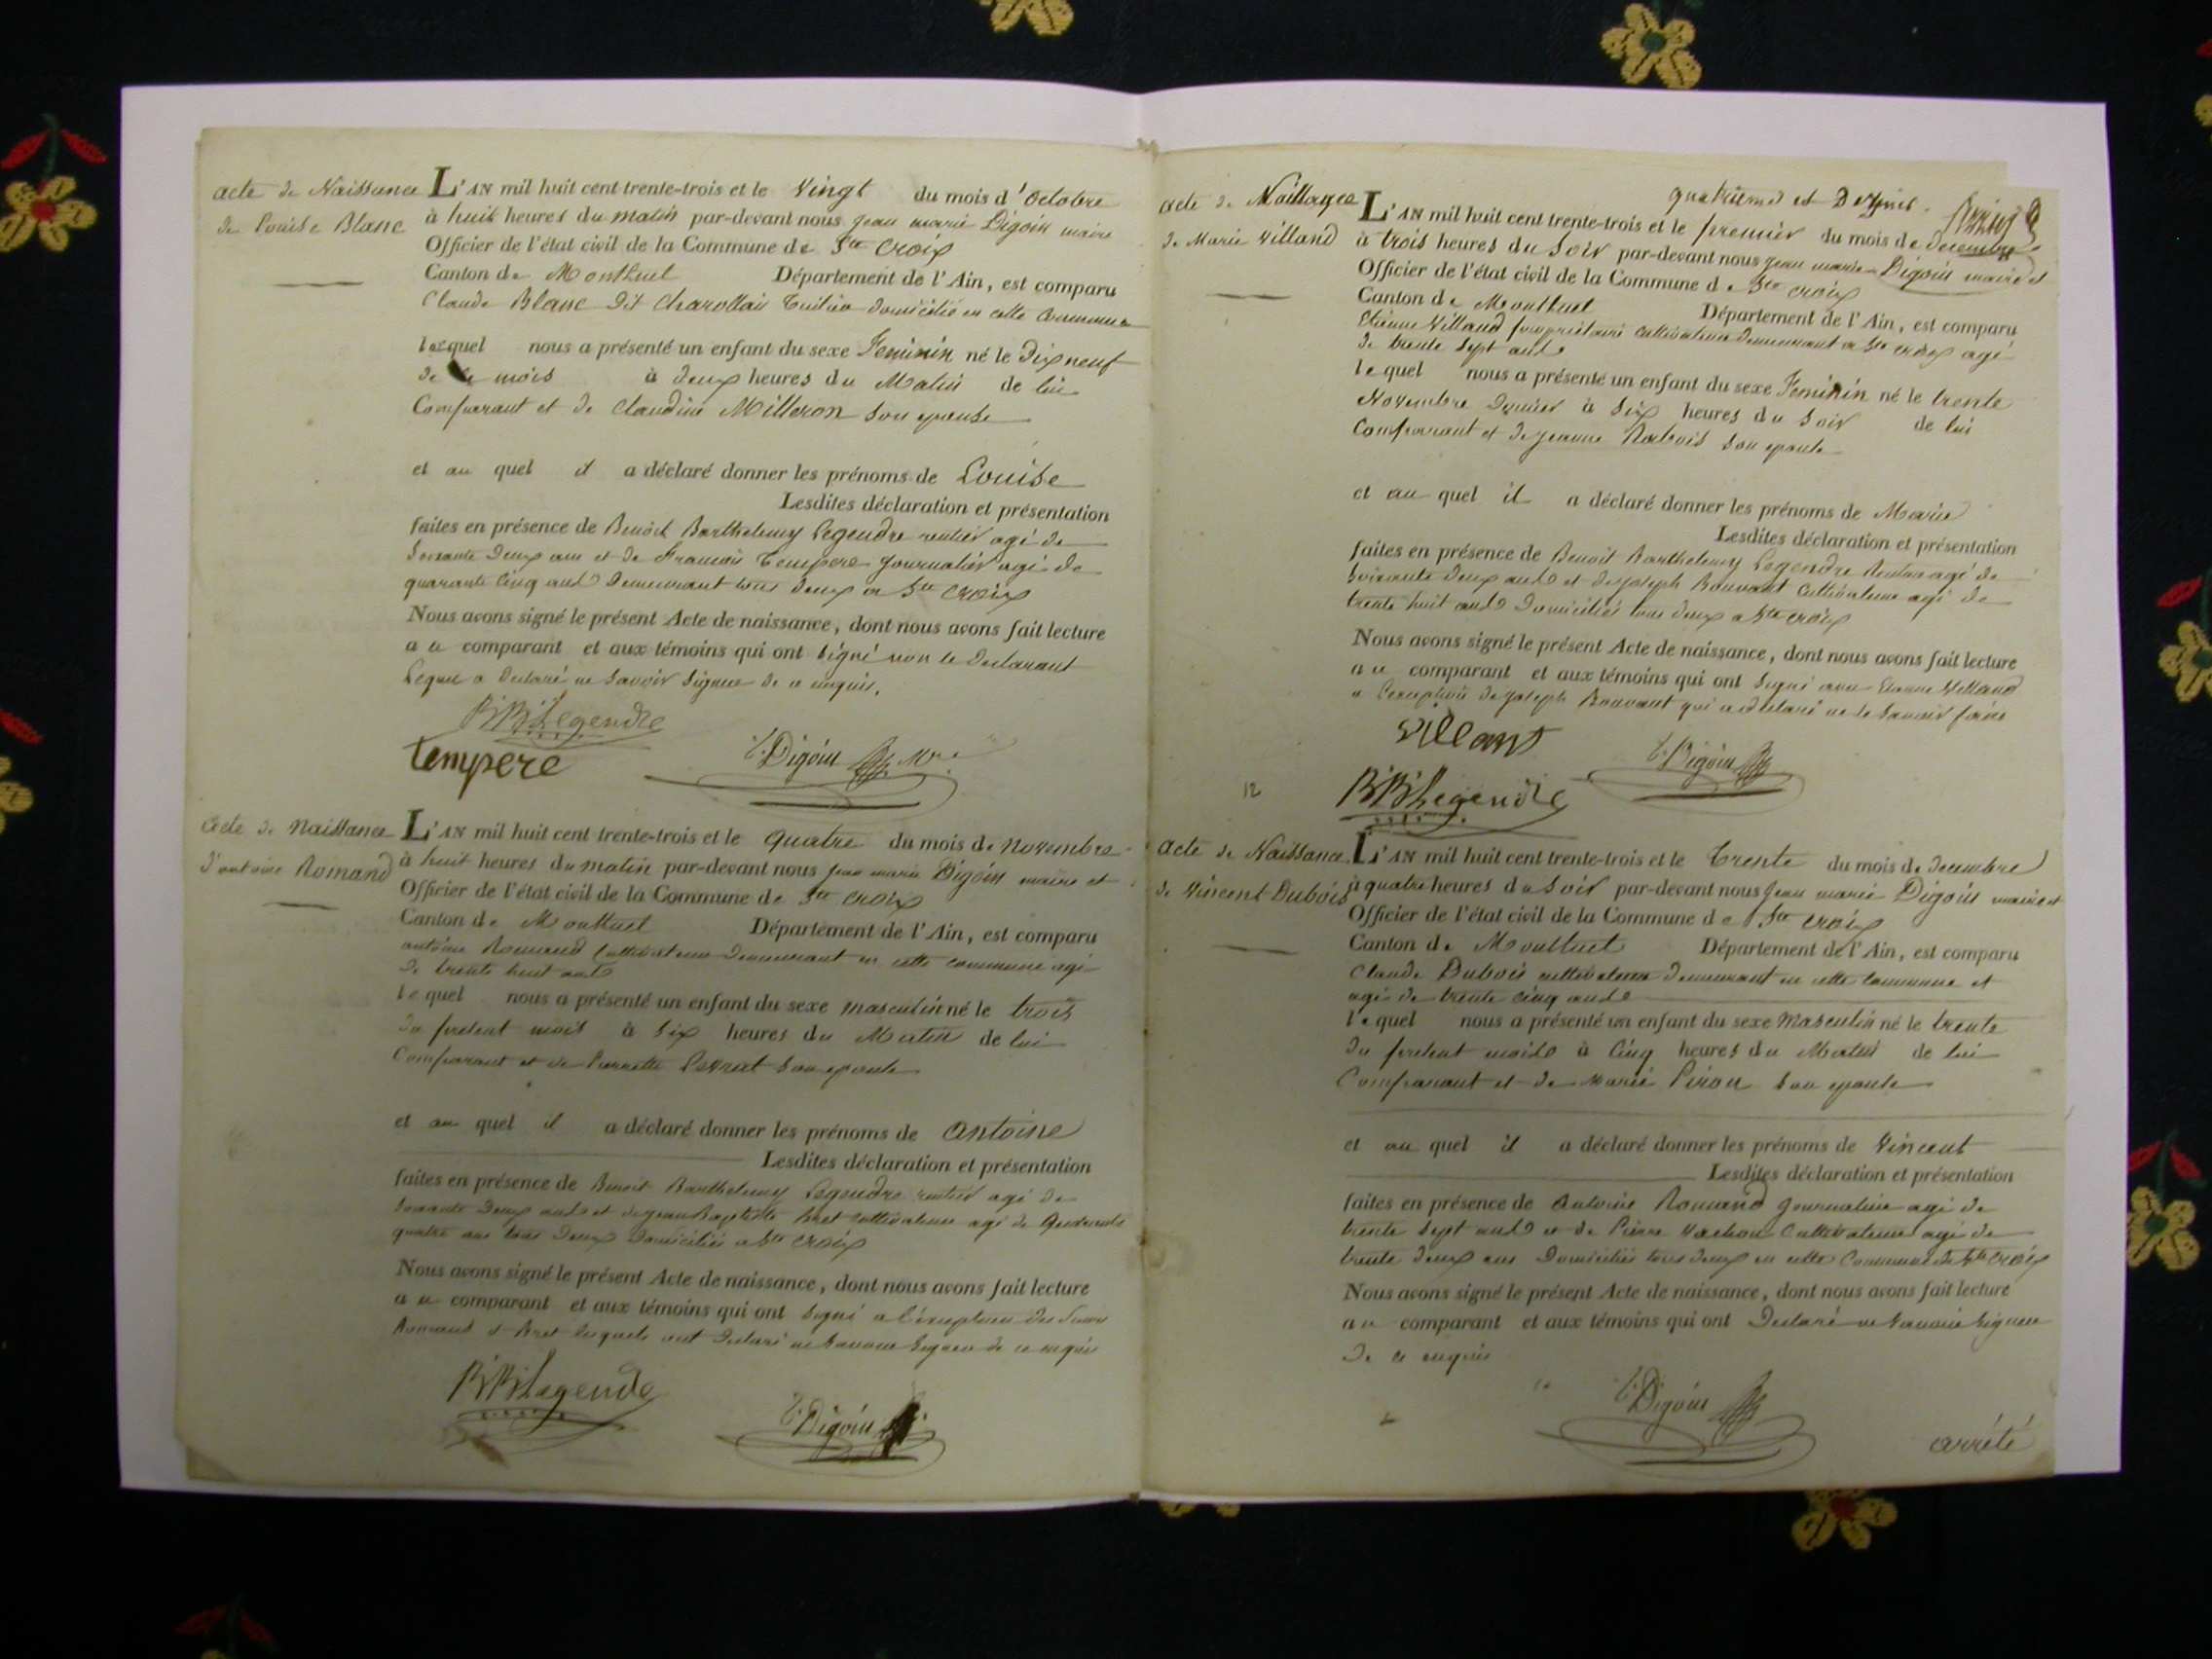 acte de Naissance
de Louise Blanc
L'AN mil huit cent trente-trois et le vingt du mois d'octobre
à huit heures du matin par-devant nous jean marie Digoin maire
Officier de l'état civil de la Commune de Ste croix
Canton de Montluel Département de l'Ain, est comparu
Claude Blanc dit Charollais Tuilier domicilié en cette commune
lequel nous a présenté un enfant du sexe Feminin né le dix neuf
de ce mois à deux heures du Matin de lui
Comparant et de Claudine Milleron son epouse
et au quel il a déclaré donner les prénoms de Louise
Lesdites déclaration et présentation
faites en présence de Benoit Barthelemy Legendre rentier agé de
soixante deux ans et de Francois Tempere journalier agé de
quarante cinq ans demeurant tous deux a Ste croix
Nous avons signé le présent Acte de naissance, dont nous avons fait lecture
au comparant et aux témoins qui ont signé non le declarant
Lequel a declaré ne savoir signer de ce enquis.
B B Legendre
tempere
Digoin Mre
acte de naissance
d'antoine Romand
L'AN mil huit cent trente-trois et le quatre du mois de novembre
à huit heures du matin par-devant nous jean marie Digoin maire et
Officier de l'état civil de la Commune de Ste croix
Canton de Montluel Département de l'Ain, est comparu
antoine Romand cultivateur demeurant en cette commune agé
de trente huit ans
lequel nous a présenté un enfant du sexe masculin né le trois
du present mois à six heures du Matin de lui
Comparant et de Pierrette son epouse
et au quel il a déclaré donner les prénoms de antoine
Lesdites déclaration et présentation
faites en présence de Benoit Barthelemy Legendre rentier agé de
soixante deux ans et de jean Baptiste Bret cultivateur agé de
quatre ans tous deux domiciliés a Ste croix
Nous avons signé le présent Acte de naissance, dont nous avons fait lecture
au comparant et aux témoins qui ont signé a l'exception des
Romand et Bret lesquels ont declaré ne savoir signer de ce enquis
B B Legendre
Digoin
quatrieme et dernier
acte de Naissance
de Marie Villand
L'AN mil huit cent trente-trois et le premier du mois de decembre
à trois heures du soir par-devant nous jean marie Digoin maire et
Officier de l'état civil de la Commune de Ste croix
Canton de Montluel Département de l'Ain, est comparu
Etienne Villand proprietaire cultivateur demeurant a Ste croix agé
de trente sept ans
lequel nous a présenté un enfant du sexe Feminin né le trente
Novembre dernier à six heures du soir de lui
Comparant et de jeanne son epouse
et au quel il a déclaré donner les prénoms de Marie
Lesdites déclaration et présentation
faites en présence de Benoit Barthelemy Legendre Rentier agé de
soixante deux ans et de joseph Bouvant cultivateur agé de
trente huit ans domiciliés tous deux a Ste croix
Nous avons signé le présent Acte de naissance, dont nous avons fait lecture
au comparant et aux témoins qui ont signé avec Etienne Villand
a l'exception de joseph Bouvant qui a declaré ne le savoir faire
villant
Digoin
12
B B Legendre
acte de Naissance
de Vincent Dubois
L'AN mil huit cent trente-trois et le trente du mois de decembre
à quatre heures du soir par-devant nous jean marie Digoin maire et
Officier de l'état civil de la Commune de Ste croix
Canton de Montluel Département de l'Ain, est comparu
Claude Dubois cultivateur demeurant en cette commune et
agé de trente cinq ans
lequel nous a présenté un enfant du sexe Masculin né le trente
du present mois à cinq heures du Matin de lui
Comparant et de marie Pirou son epouse
et au quel il a déclaré donner les prénoms de Vincent
Lesdites déclaration et présentation
faites en présence de antoine Romand journalier agé de
trente sept ans et de Pierre Vachon cultivateur agé de
trente deux ans domiciliés tous deux en cette Commune de Ste croix
Nous avons signé le présent Acte de naissance, dont nous avons fait lecture
au comparant et aux témoins qui ont declaré ne savoir signer
de ce enquis
Digoin
arrété